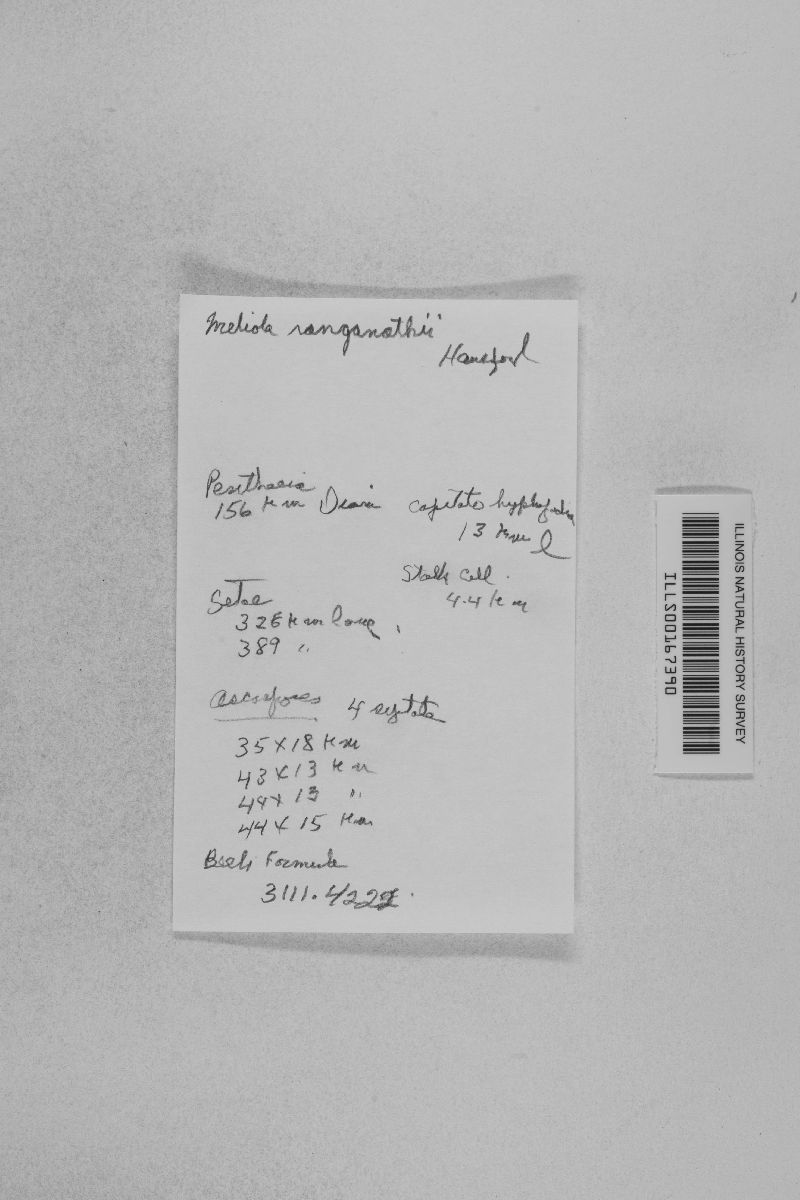 Meliola ranganathii
Hansford
Perithecia
156 µm Diam
capitate hyphopodia
13 µm l
Stalk cell
4.4 µm
Setae
326 µm long
389 "
Ascospores 4 septate
35 x 18 µm
43 x 13 µm
44 x 13 "
44 x 15 µm
Beeli Formula
3111.4222
ILLINOIS NATURAL HISTORY SURVEY
ILLS00167390